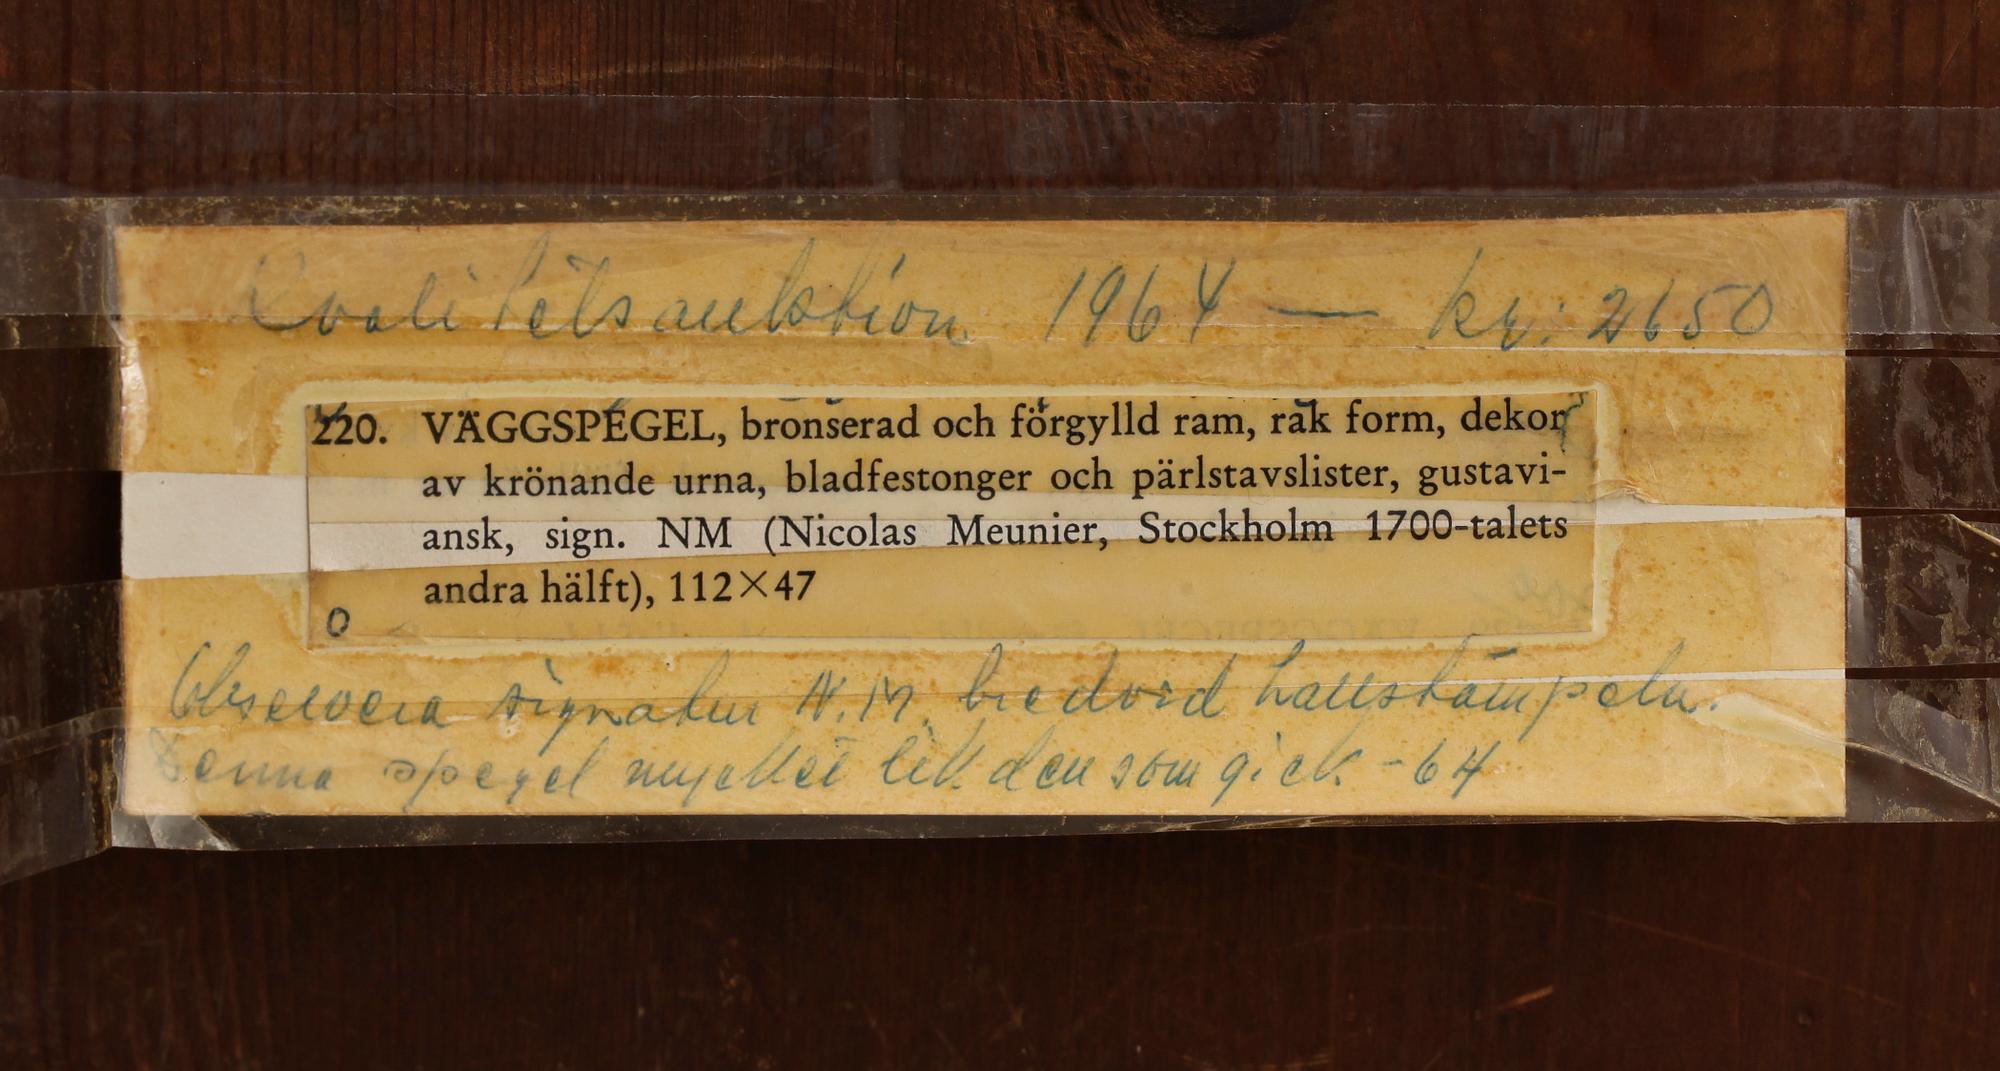 Qvalitétsauktion 1964 — kr: 2650
220. VÄGGSPEGEL, bronserad och förgylld ram, rak form, dekor
av krönande urna, bladfestonger och pärlstavslister, gustavi-
ansk, sign. NM (Nicolas Meunier, Stockholm 1700-talets
andra hälft), 112×47
O
Observera signatur N.M. bredvid hallstämpeln.
Denna spegel mycket lik den som gick -64